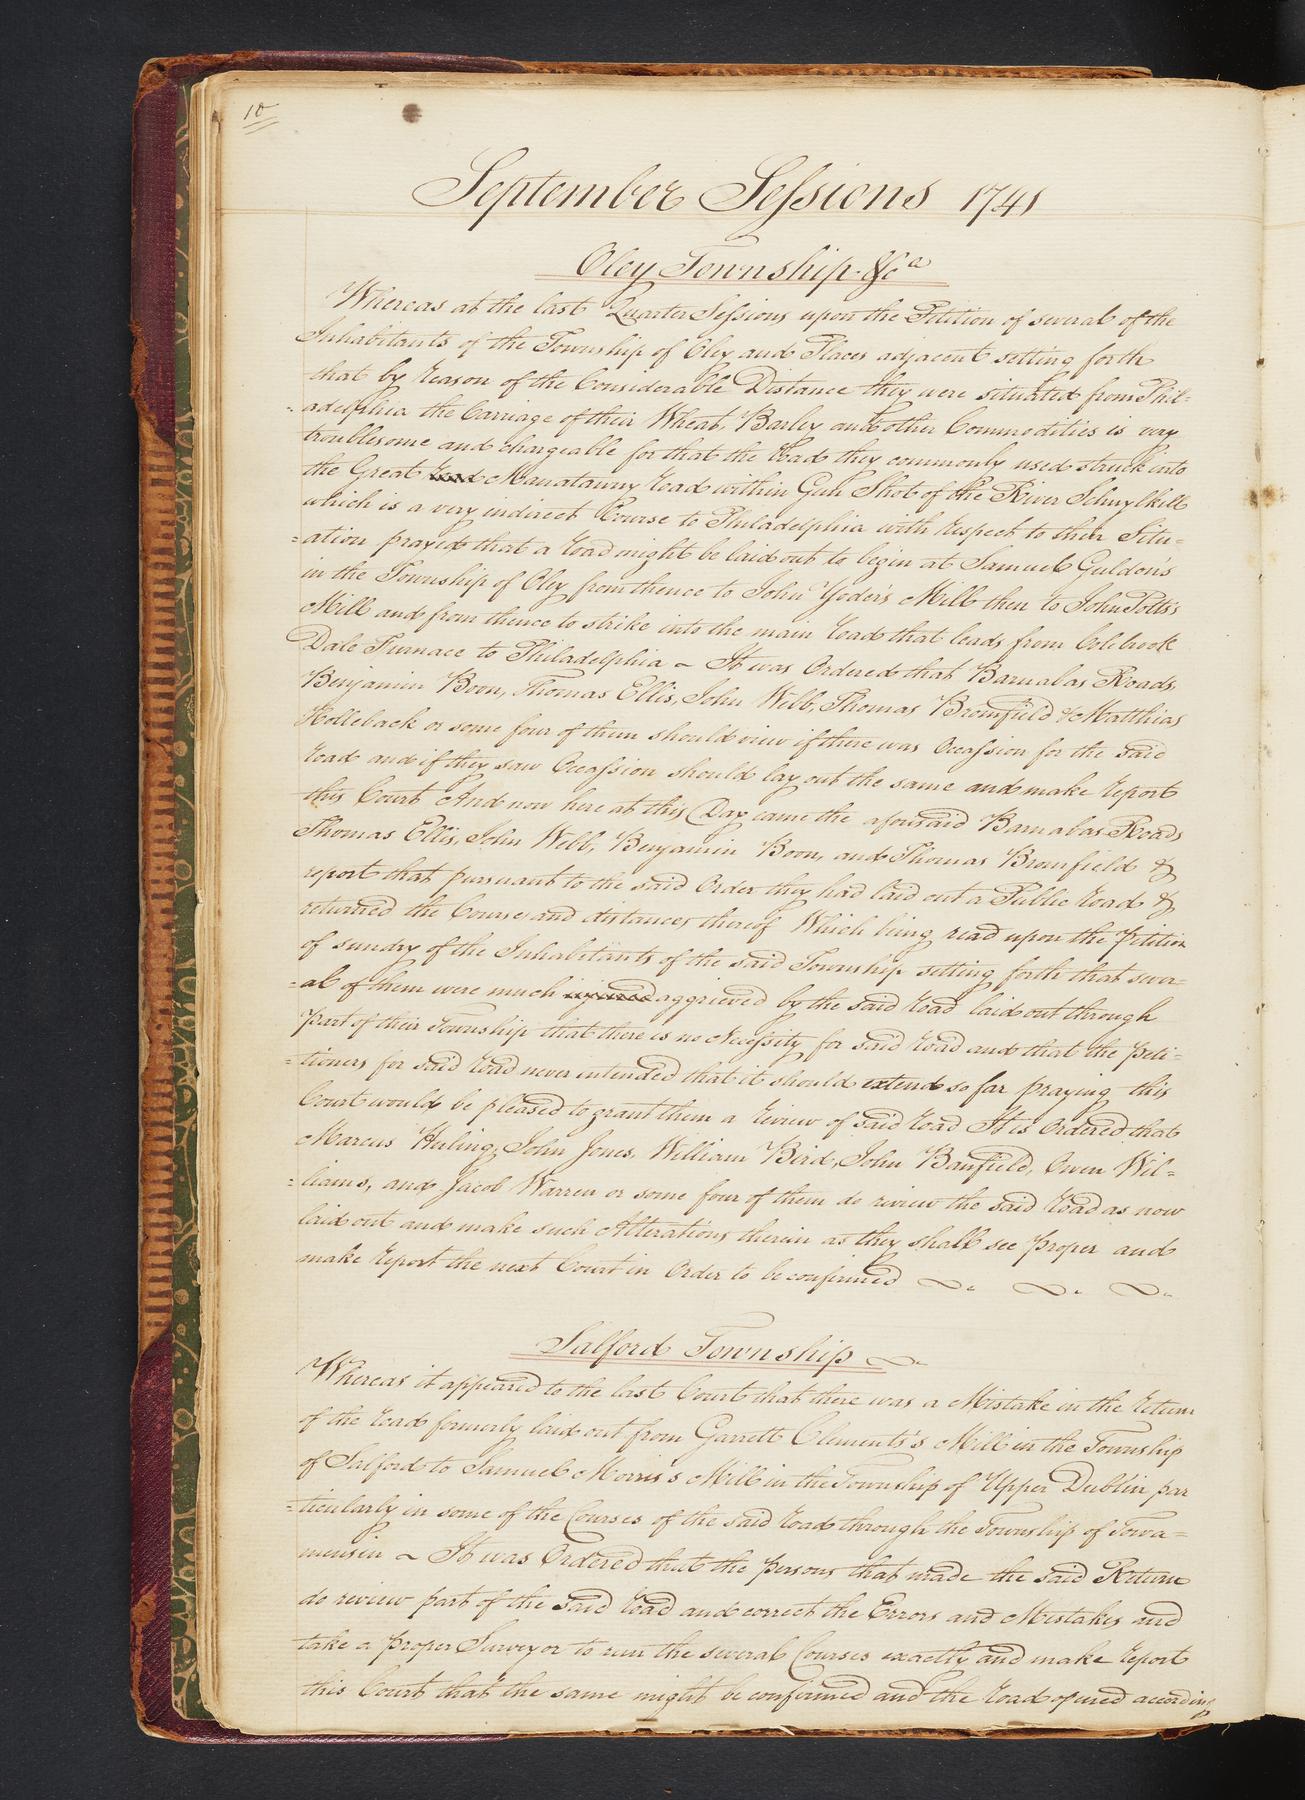 10
September Sessions 1741
Oley Township &ca
Whereas at the last Quarter Sessions upon the Petition of several of the
Inhabitants of the Township of Oley and Places adjacent setting forth
that by reason of the Considerable Distance they were situated from Phil=
=adelphia the Carriage of their Wheat, Barley and other Commodities is very
troublesome and chargeable for that the Road they commonly used struck into
the Great Road Manatawny Road within Gun Shot of the River Schuylkill
which is a very indirect Course to Philadelphia with respect to their Situ=
=ation prayed that a road might be laid out to begin at Samuel Guldon's
in the Township of Oley from thence to John Yoder's Mill then to John Potts's
Mill and from thence to strike into the main road that leads from Colebrook
Dale Furnace to Philadelphia ~ It was Ordered that Barnabas Roads,
Benjamin Boon, Thomas Ellis, John Webb, Thomas Bromfield & Matthias
Holleback or some four of them should view if there was Occassion for the said
road and if they saw Occassion should lay out the same and make report
this Court And now here at this Day came the aforesaid Barnabas Roads
Thomas Ellis, John Webb, Benjamin Boon, and Thomas Brumfield &
report that pursuant to the said Order they had laid out a Public road &
returned the Courses and distances thereof Which being read upon the Petition
of sundry of the Inhabitants of the said Township setting forth that sever=
=al of them were much injured aggrieved by the said road laid out through
part of their Township that there is no Necessity for said road and that the peti=
=tioners for said road never intended that it should extend so far praying this
Court would be pleased to grant them a review of said road It is Ordered that
Marcus Huling, John Jones, William Bird, John Banfield, Owen Wil=
=liams, and Jacob Warren or some four of them do review the said road as now
laid out and make such Alterations therein as they shall see proper and
make report the next Court in Order to be confirmed
Salford Township
Whereas it appeared to the last Court that there was a Mistake in the Return
of the road formerly laid out from Garrett Clements's Mill in the Township
of Salford to Samuel Morris's Mill in the Township of Upper Dublin par
=ticularly in some of the Courses of the said road through the Township of Towa=
mensin ~ It was Ordered that the persons that made the said Return
do review part of the said road and correct the Errors and Mistakes and
take a proper Surveyor to run the several Courses exactly and make report
this Court that the same might be confirmed and the road opened according